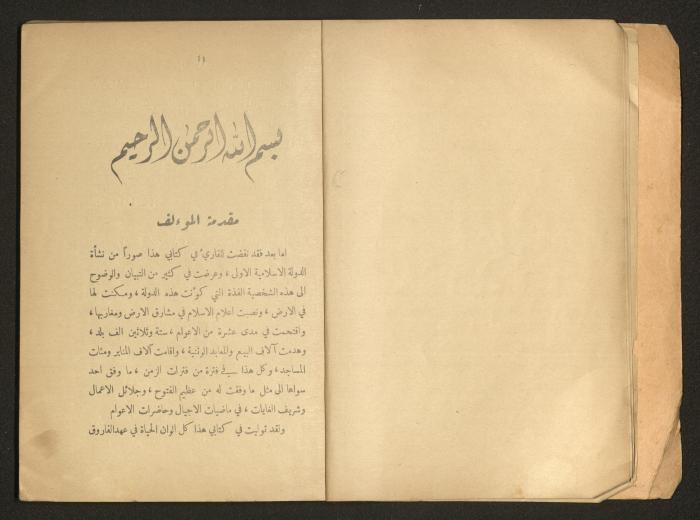 ١١
بسم الله الرحمن الرحيم
مقدمة المؤلف
اما بعد فقد نفضت للقاريء في كتابي هذا صوراً من نشأة
الدولة الاسلامية الاولى ، وعرضت في كثير من التبيان والوضوح
الى هذه الشخصية الفذة التي كوّنت هذه الدولة ، ومكنت لها
في الارض ، ونصبت اعلام الاسلام في مشارق الارض ومغاربها ،
وافتحمت في مدى عشرة من الاعوام ، ستة وثلاثين الف بلد ،
وهدمت آلاف البيع والمعابد الوثنية ، واقامت آلاف المنابر ومئات
المساجد ، وكل هذا في فترة من فترات الزمن ، ما وفق احد
سواها الى مثل ما وفقت له من عظيم الفتوح ، وجلائل الاعمال
وشريف الغايات ، في ماضيات الاجيال وحاضرات الاعوام
ولقد توليت في كتابي هذا كل الوان الحياة في عهد الفاروق